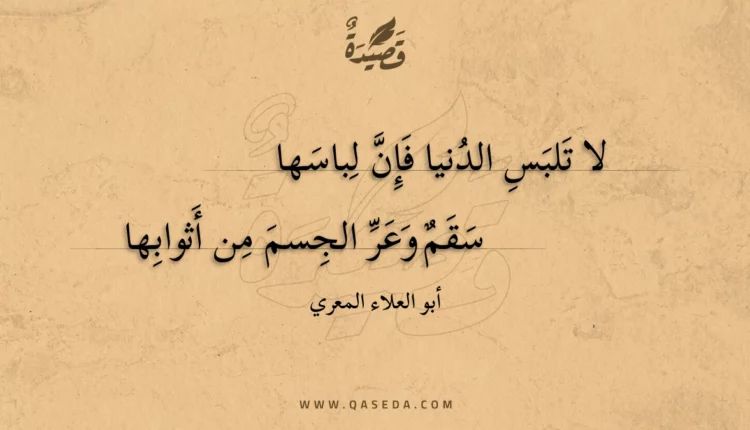 قَصِيْدَةٌ
لا تَلبَسِ الدُنيا فَإِنَّ لِباسَها
سَقَمٌ وَعَرِّ الجِسمَ مِن أَثوابِها
أبو العلاء المعري
WWW.QASEDA.COM